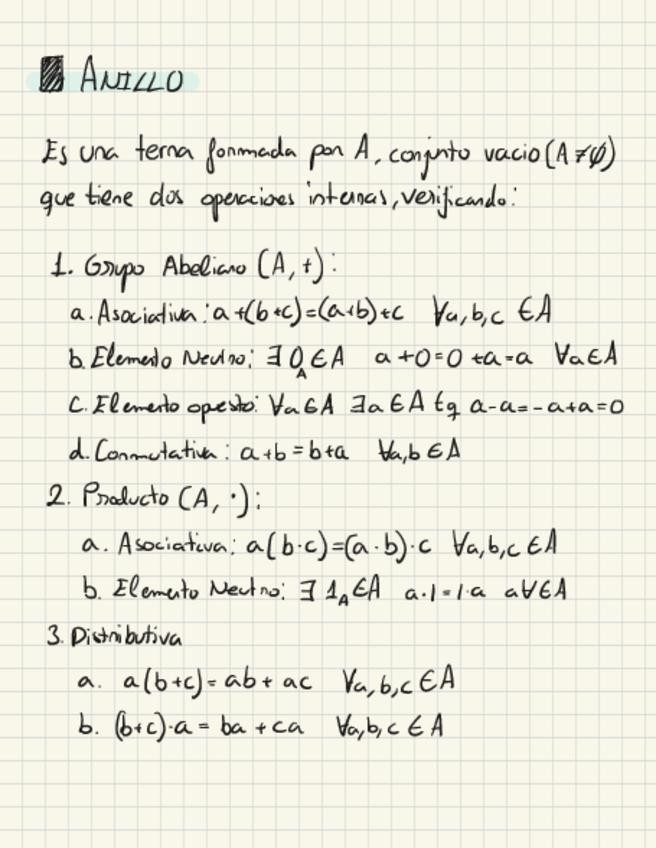 ANILLO
Es una terna formada por A, conjunto vacio (A ≠ ∅)
que tiene dos operaciones internas, verificando:
1. Grupo Abeliano (A, +):
a. Asociativa: a+(b+c)=(a+b)+c ∀a,b,c ∈A
b. Elemento Neutro: ∃ 0_A ∈A a+0=0+a=a ∀a∈A
c. Elemento opesto: ∀a∈A ∃a∈A tq a-a=-a+a=0
d. Conmutativa: a+b=b+a ∀a,b ∈A
2. Producto (A, ·):
a. Asociativa: a(b·c)=(a·b)·c ∀a,b,c ∈A
b. Elemento Neutro: ∃ 1_A ∈A a·1=1·a a∀∈A
3. Distributiva
a. a(b+c)= ab+ ac ∀a,b,c ∈A
b. (b+c)·a = ba +ca ∀a,b,c ∈A